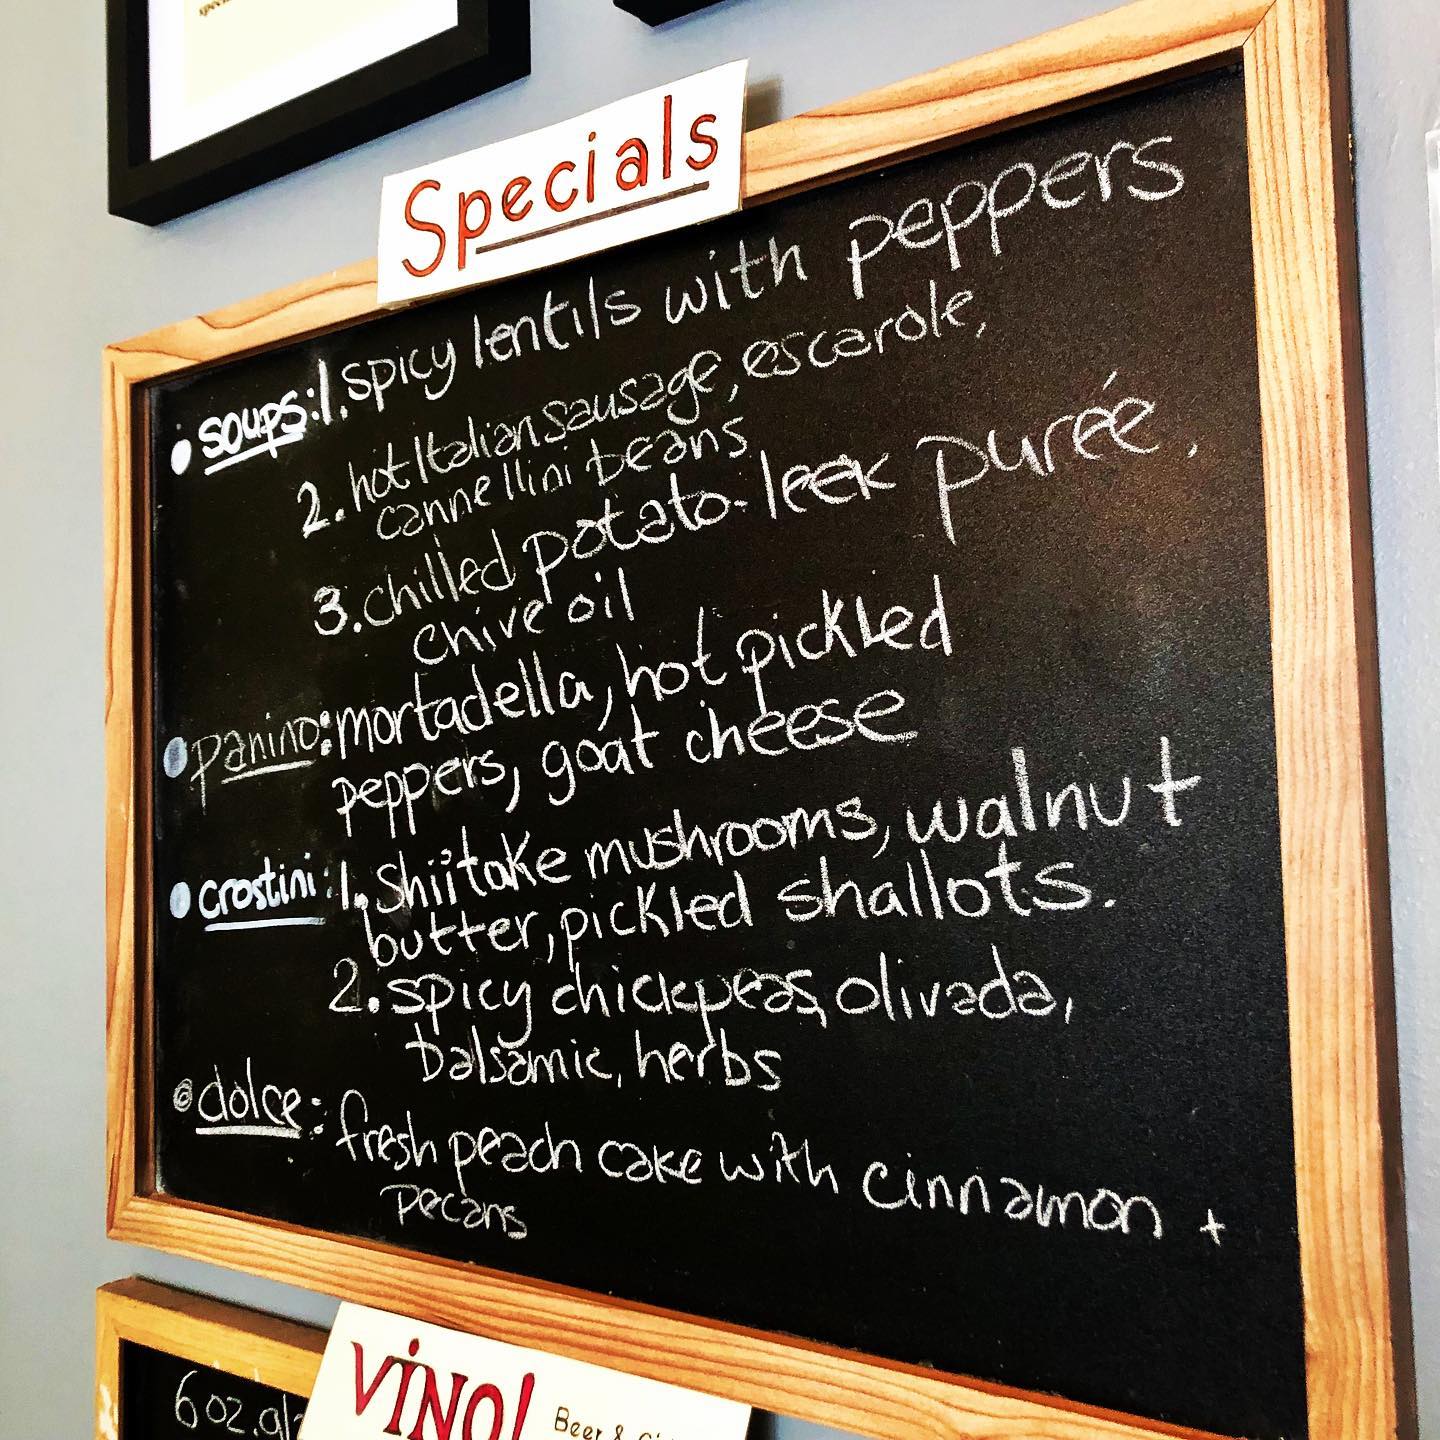 Specials
• soups: 1. spicy lentils with peppers
2. hot Italian sausage, escarole,
cannellini beans
3. chilled potato-leek purée,
chive oil
• panino: mortadella, hot pickled
peppers, goat cheese
• crostini: 1. shiitake mushrooms, walnut
butter, pickled shallots.
2. spicy chickpeas, olivada,
balsamic, herbs
• dolce: fresh peach cake with cinnamon +
pecans
VINO!
Beer &
6 oz.